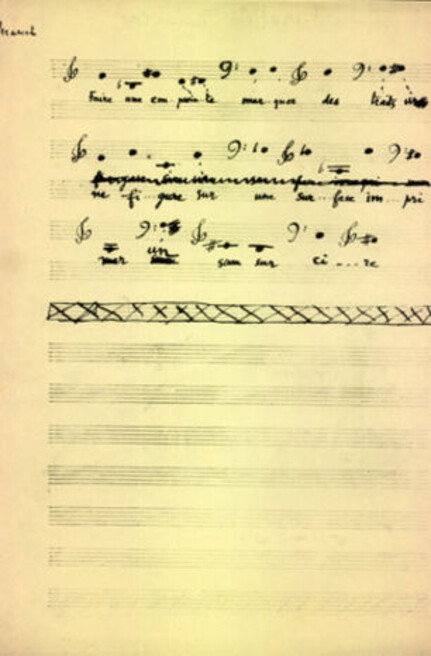 Marcel
Faire une em prein te mar quer des traits
ne fi..gure sur une sur..face im...pri
mer un sceau sur ci....re